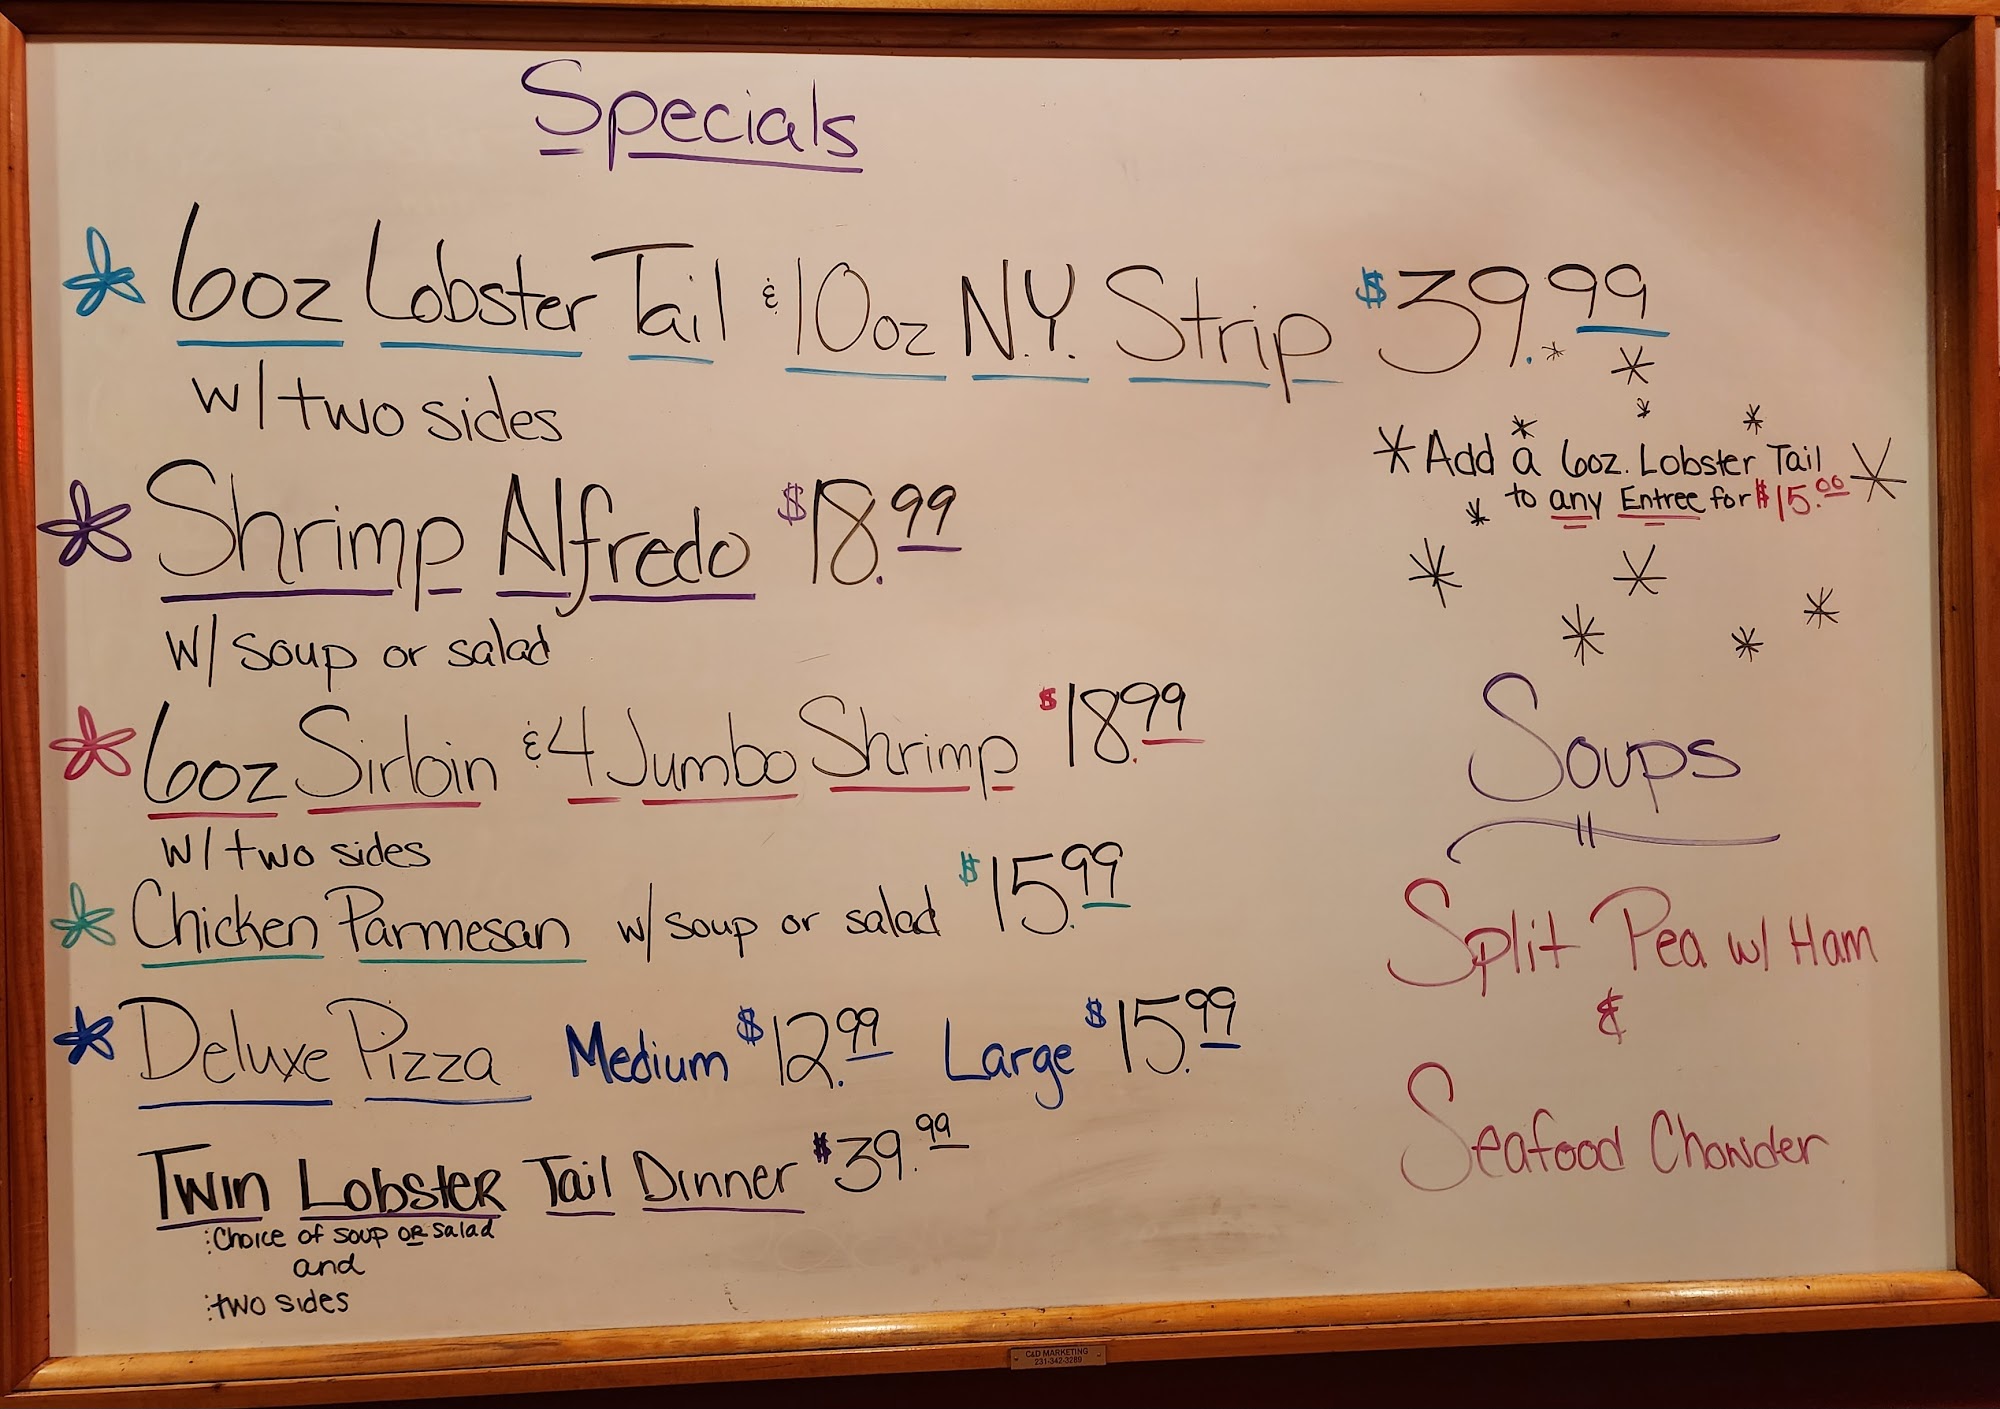 Specials
6oz Lobster Tail & 10oz N.Y. Strip $39.99
w/ two sides
*Add a 6oz. Lobster Tail
to any Entree for $15.00
Shrimp Alfredo $18.99
w/ soup or salad
6oz Sirloin & 4 Jumbo Shrimp $18.99
w/ two sides
Chicken Parmesan w/ soup or salad $15.99
Deluxe Pizza Medium $12.99 Large $15.99
Twin Lobster Tail Dinner $39.99
:Choice of soup or salad
and
:two sides
Soups
Split Pea w/ Ham
&
Seafood Chowder
C&D MARKETING
231-342-3289